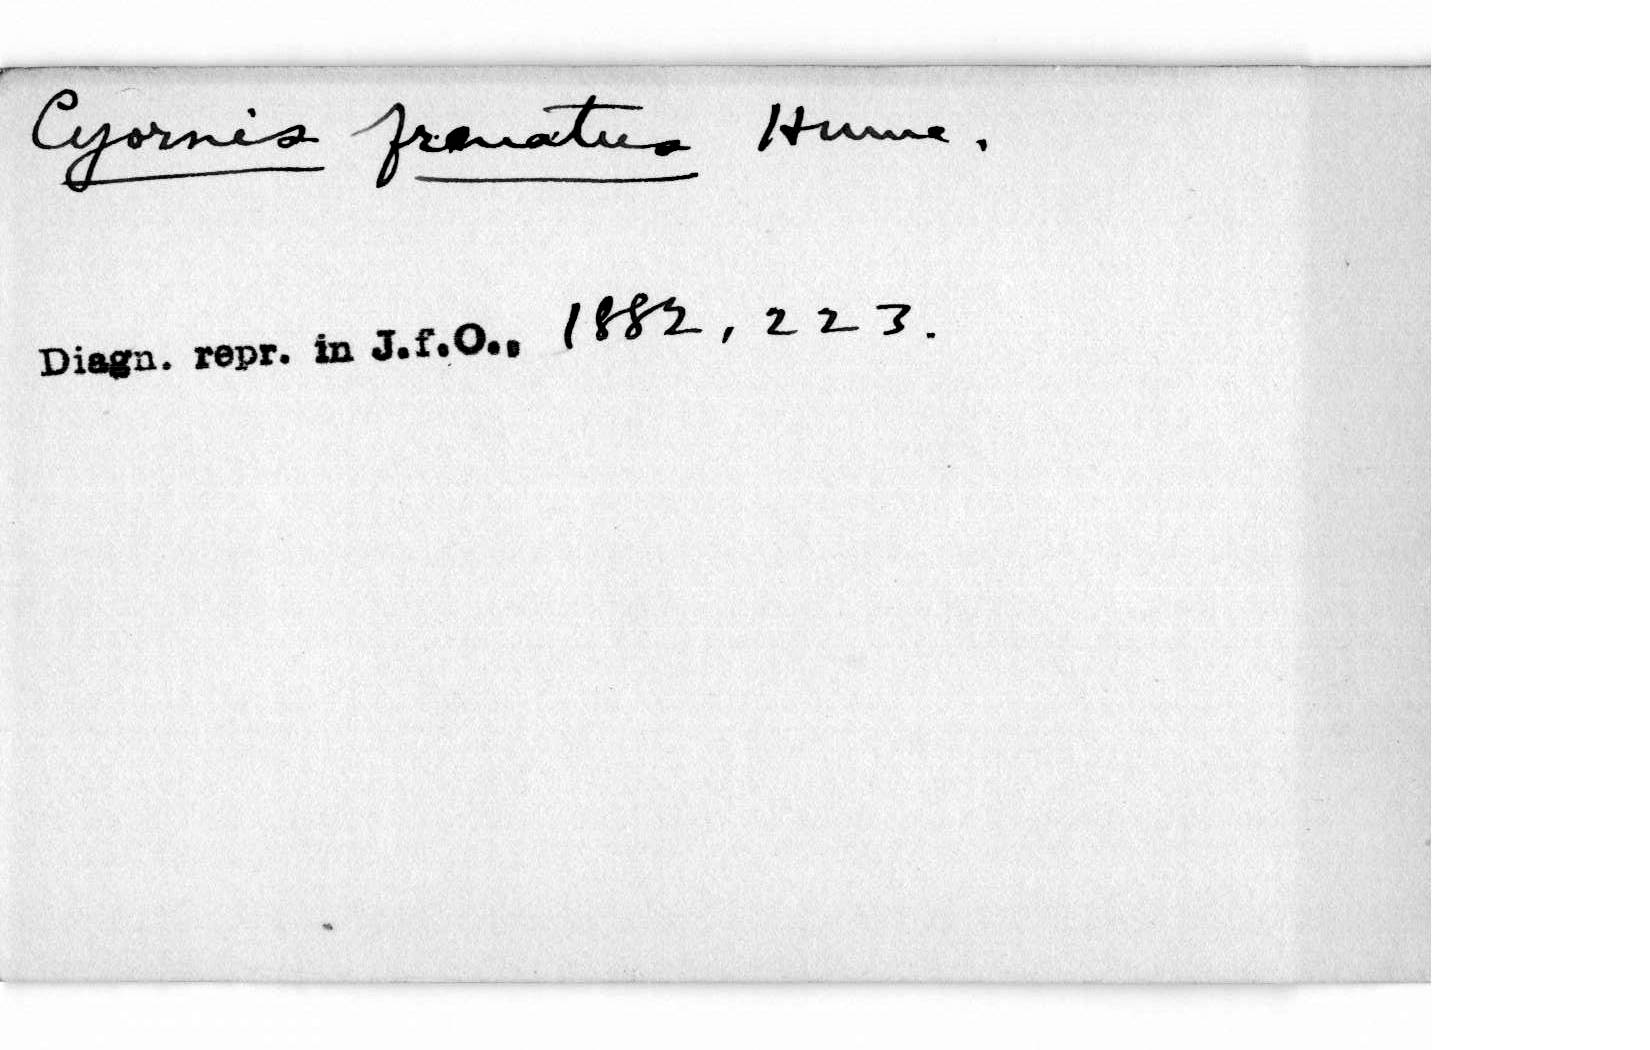 Cyornis frenatus Hume.
Diagn. repr. in J.f.O., 1882, 223.